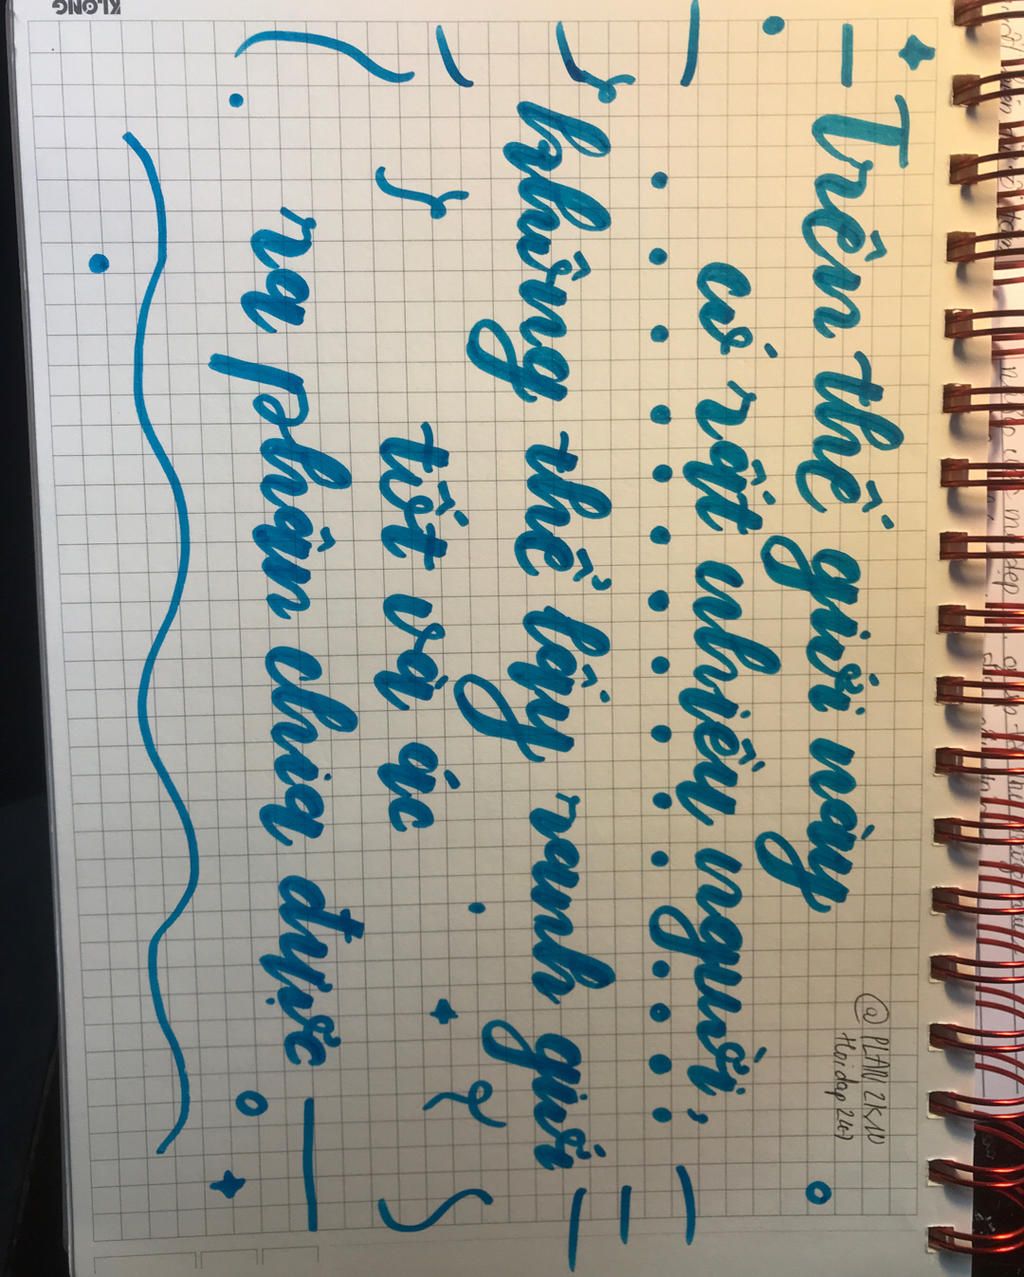 Trên thế giới này
có rất nhiều người,
không thể lấy ranh giới
tốt và ác
ra phân chia được
@PLANZKIU
Hoidap247
KLONG